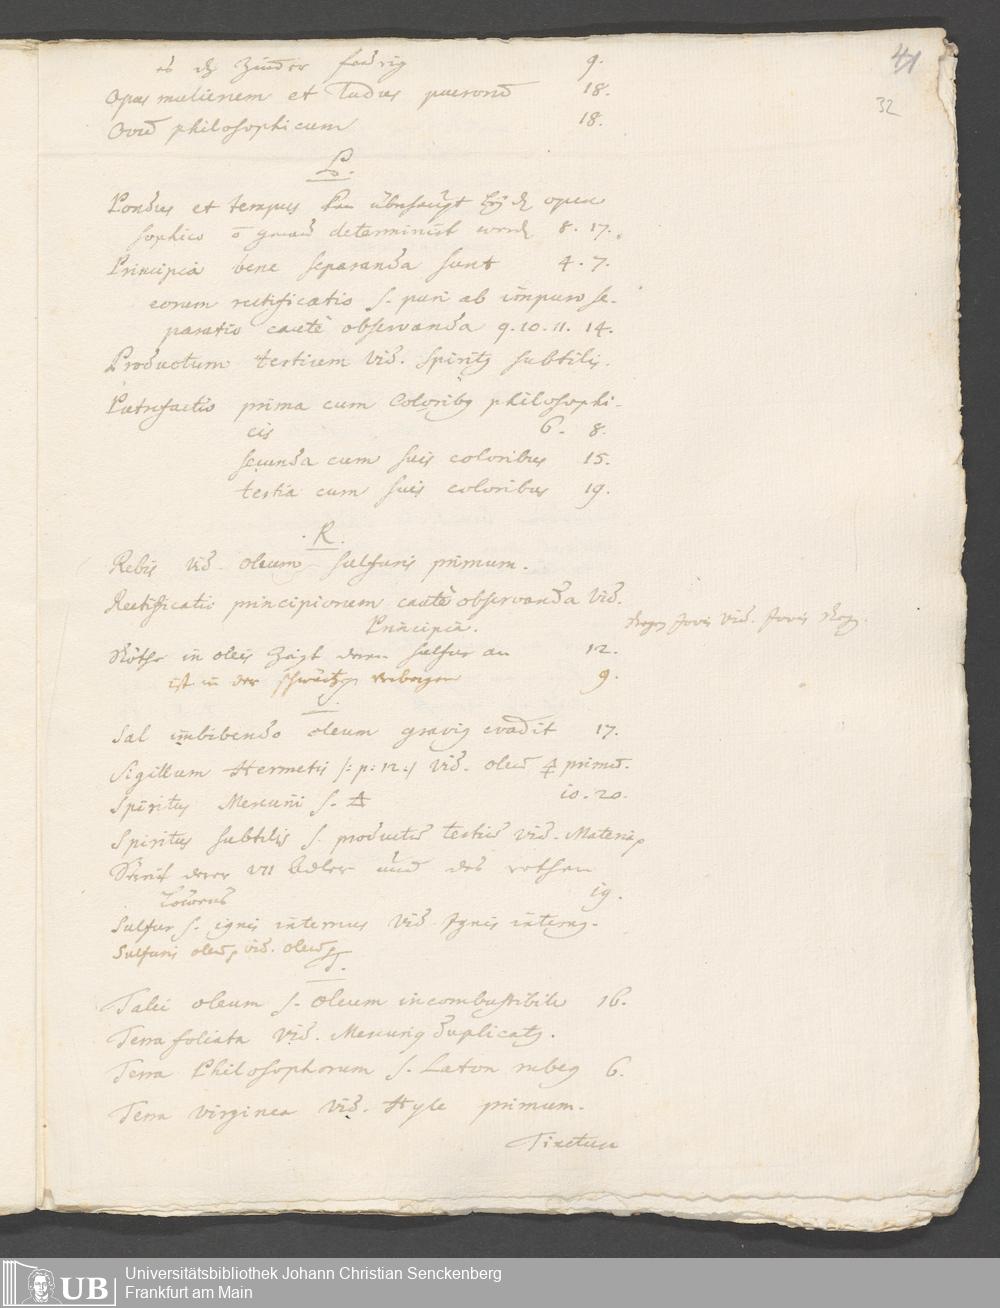 9.
Opus mulierum et Ludus puerorū 18.
Ovū philosophicum 18.
P.
Pondus et tempus kan überhaupt bey dē open
sophico ō genau determinirt werdē 8. 17.
Principia bene separanda sunt 4. 7.
eorum rectificatio s. puri ab impuro se-
paratio cautè observanda 9. 10. 11. 14.
Productum tertium vid. Spirit9 subtilis.
Putrefactio prima cum Colorib9 philosophi-
cis 6. 8.
secunda cum suis coloribus 15.
tertia cum suis coloribus 19.
R.
Rebis vid. oleum sulfuris primum.
Rectificatio principiorum cautè observanda vid.
Principia.
Regen Jovis vid. Jovis Regen
Röthe in oleis zeigt deren sulfur an 12.
ist in der schwärtze verborgen 9.
S.
Sal imbibendo oleum gravis evadit 17.
Sigillum Hermetis /: p: 12:/ vid. oleū 🜍 primū.
Spiritus Mercurii s. 🜁 10. 20.
Spiritus subtilis s. productū tertiū vid. Materia
derer VII Adler und des rothen
Löwens 19.
Sulfur s. ignis internus vid. Ignis intern9.
Sulfuris oleū, vid. oleū
T.
Talci oleum s. Oleum incombustibile 16.
Terra foliata vid. Mercuri9 duplicat9.
Terra Philosophorum s. Laton rube9 6.
Terra virginea vid. Hyle primum.
Tinctura
41
32
UB
Universitätsbibliothek Johann Christian Senckenberg
Frankfurt am Main